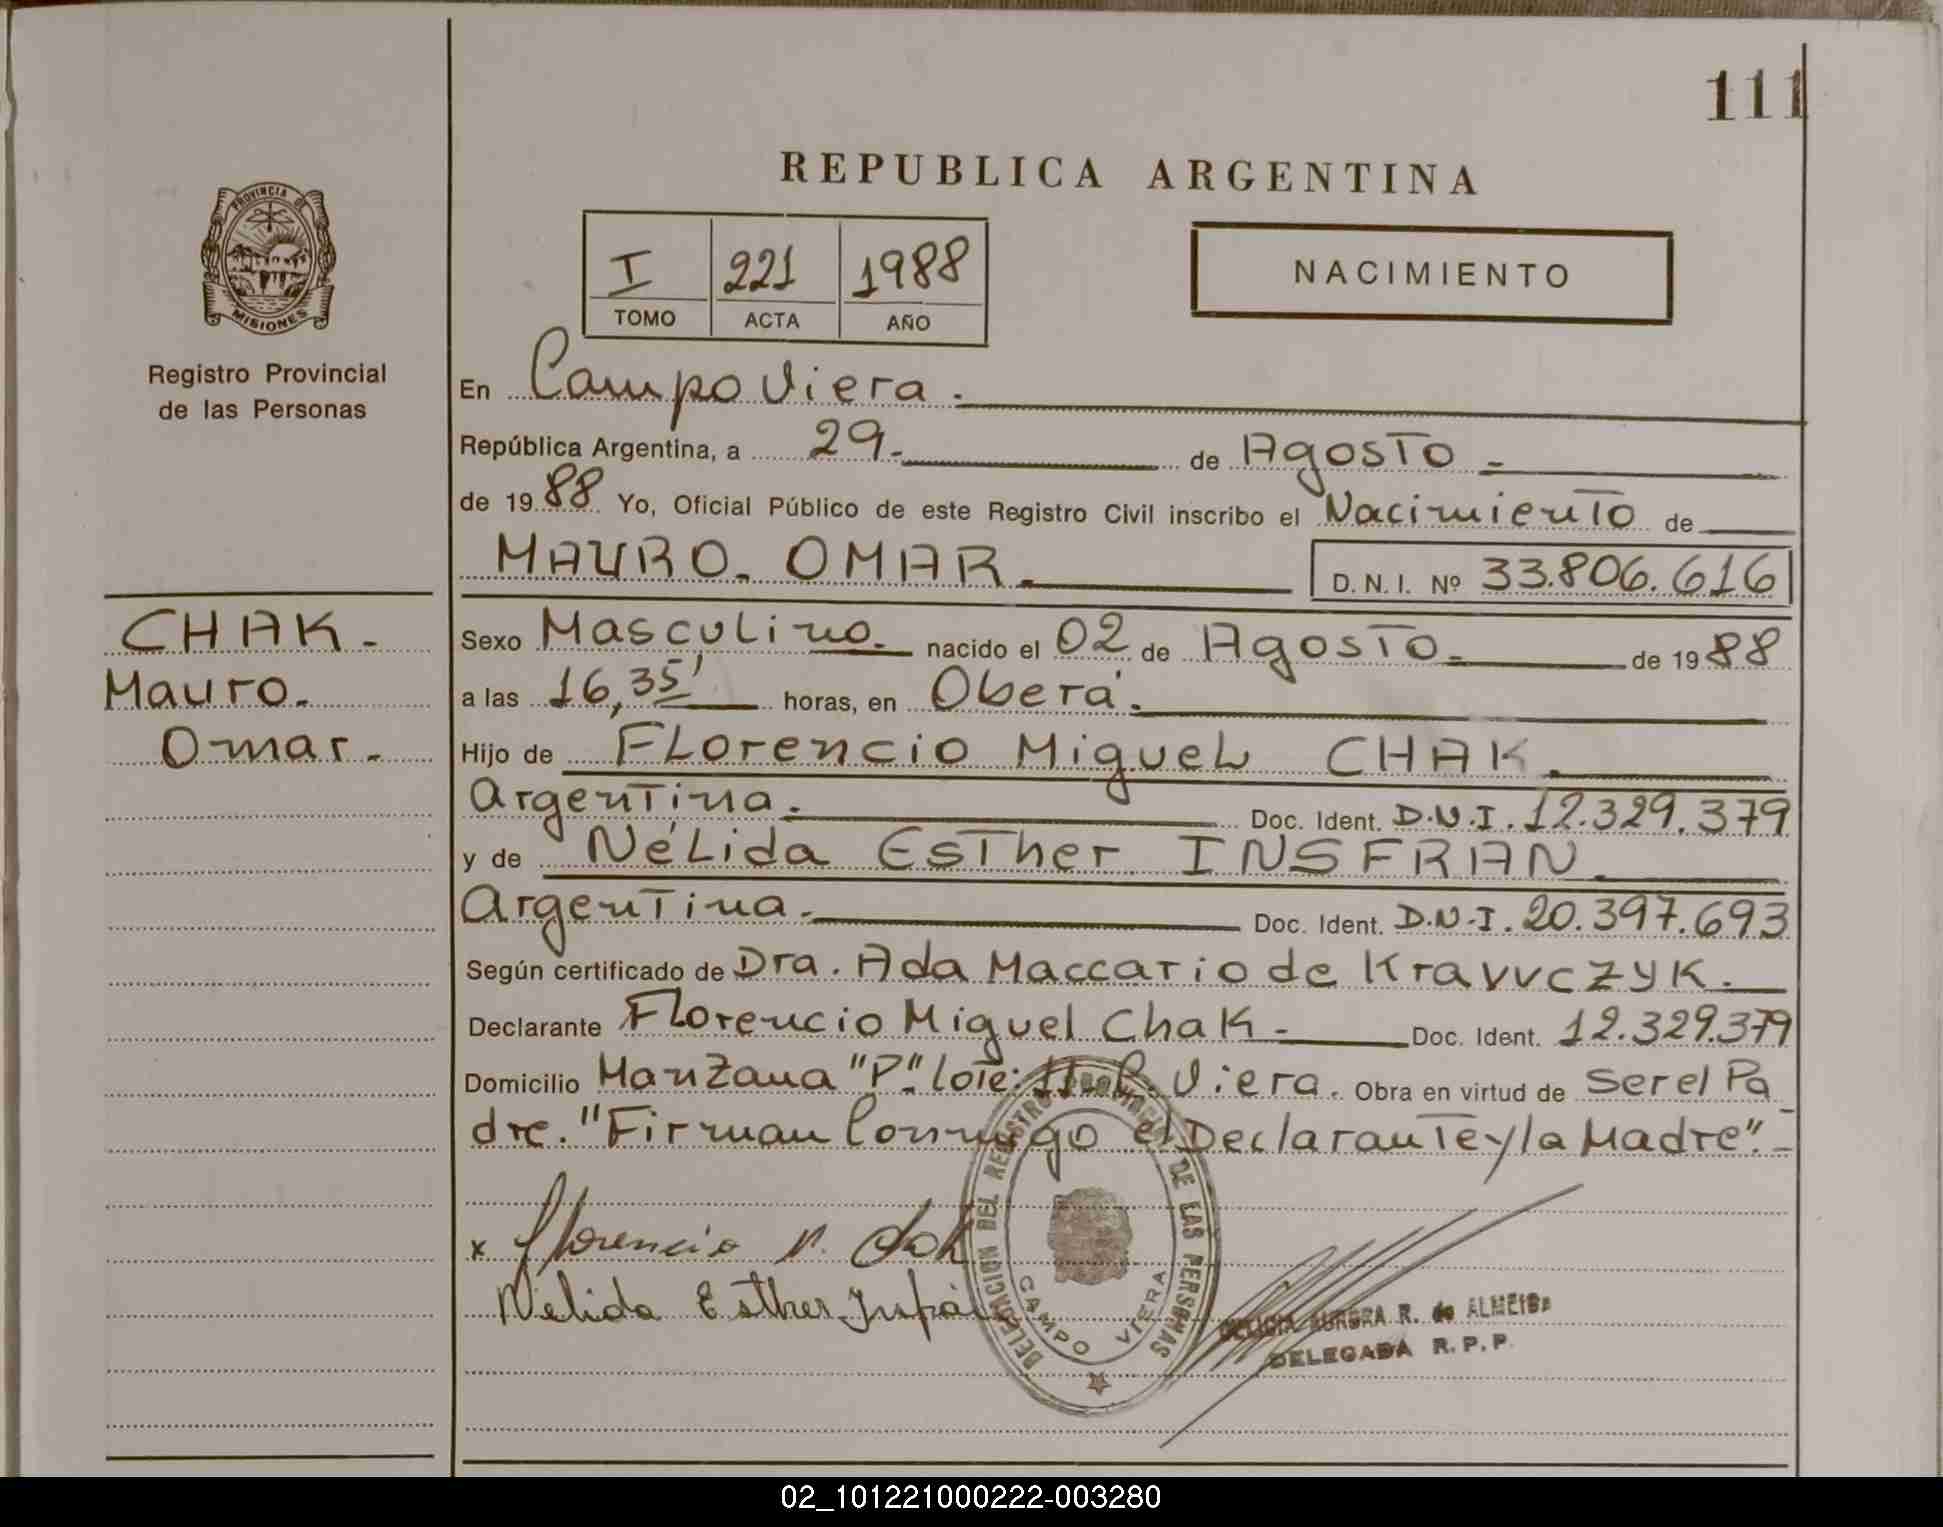 111
REPUBLICA ARGENTINA
PROVINCIA DE
MISIONES
Registro Provincial
de las Personas
I 221 1988
TOMO ACTA AÑO
NACIMIENTO
En Campo Viera.
República Argentina, a 29. de Agosto
de 1988 Yo, Oficial Público de este Registro Civil inscribo el Nacimiento de
MAURO. OMAR. D. N. I. Nº 33.806.616
CHAK.
Mauro.
Omar.
Sexo Masculino. nacido el 02 de Agosto. de 1988
a las 16,35' horas, en Oberá.
Hijo de Florencio Miguel CHAK.
Argentina. Doc. Ident. D.N.I. 12.329.379
y de Nélida Esther INSFRAN.
Argentina. Doc. Ident. D.N.I. 20.397.693
Según certificado de Dra. Ada Maccario de Kravvczyk.
Declarante Florencio Miguel Chak. Doc. Ident. 12.329.379
Domicilio Manzana "P" Lote: 11. C. Viera. Obra en virtud de Ser el Pa
dre. "Firman Conmigo el Declarante y la Madre".-
x Florencio M. Chak
Nelida Esther Insfrán
DELEGACION DEL REGISTRO PROVINCIAL DE LAS PERSONAS
CAMPO VIERA
DELICIA AURORA R. de ALMEIDA
DELEGADA R. P. P.
02_101221000222-003280